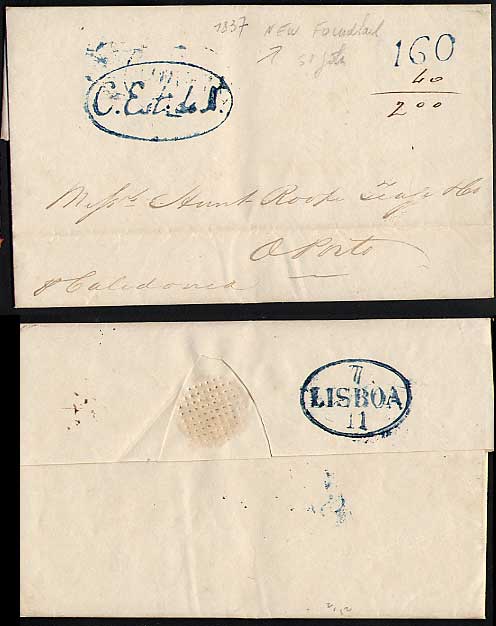 1837 NEW Foundland
St John
160
C. Est. de N.
40
200
Messrs. Hunt Roope Teage & Co
O Porto
p Caledonia
7
LISBOA
11